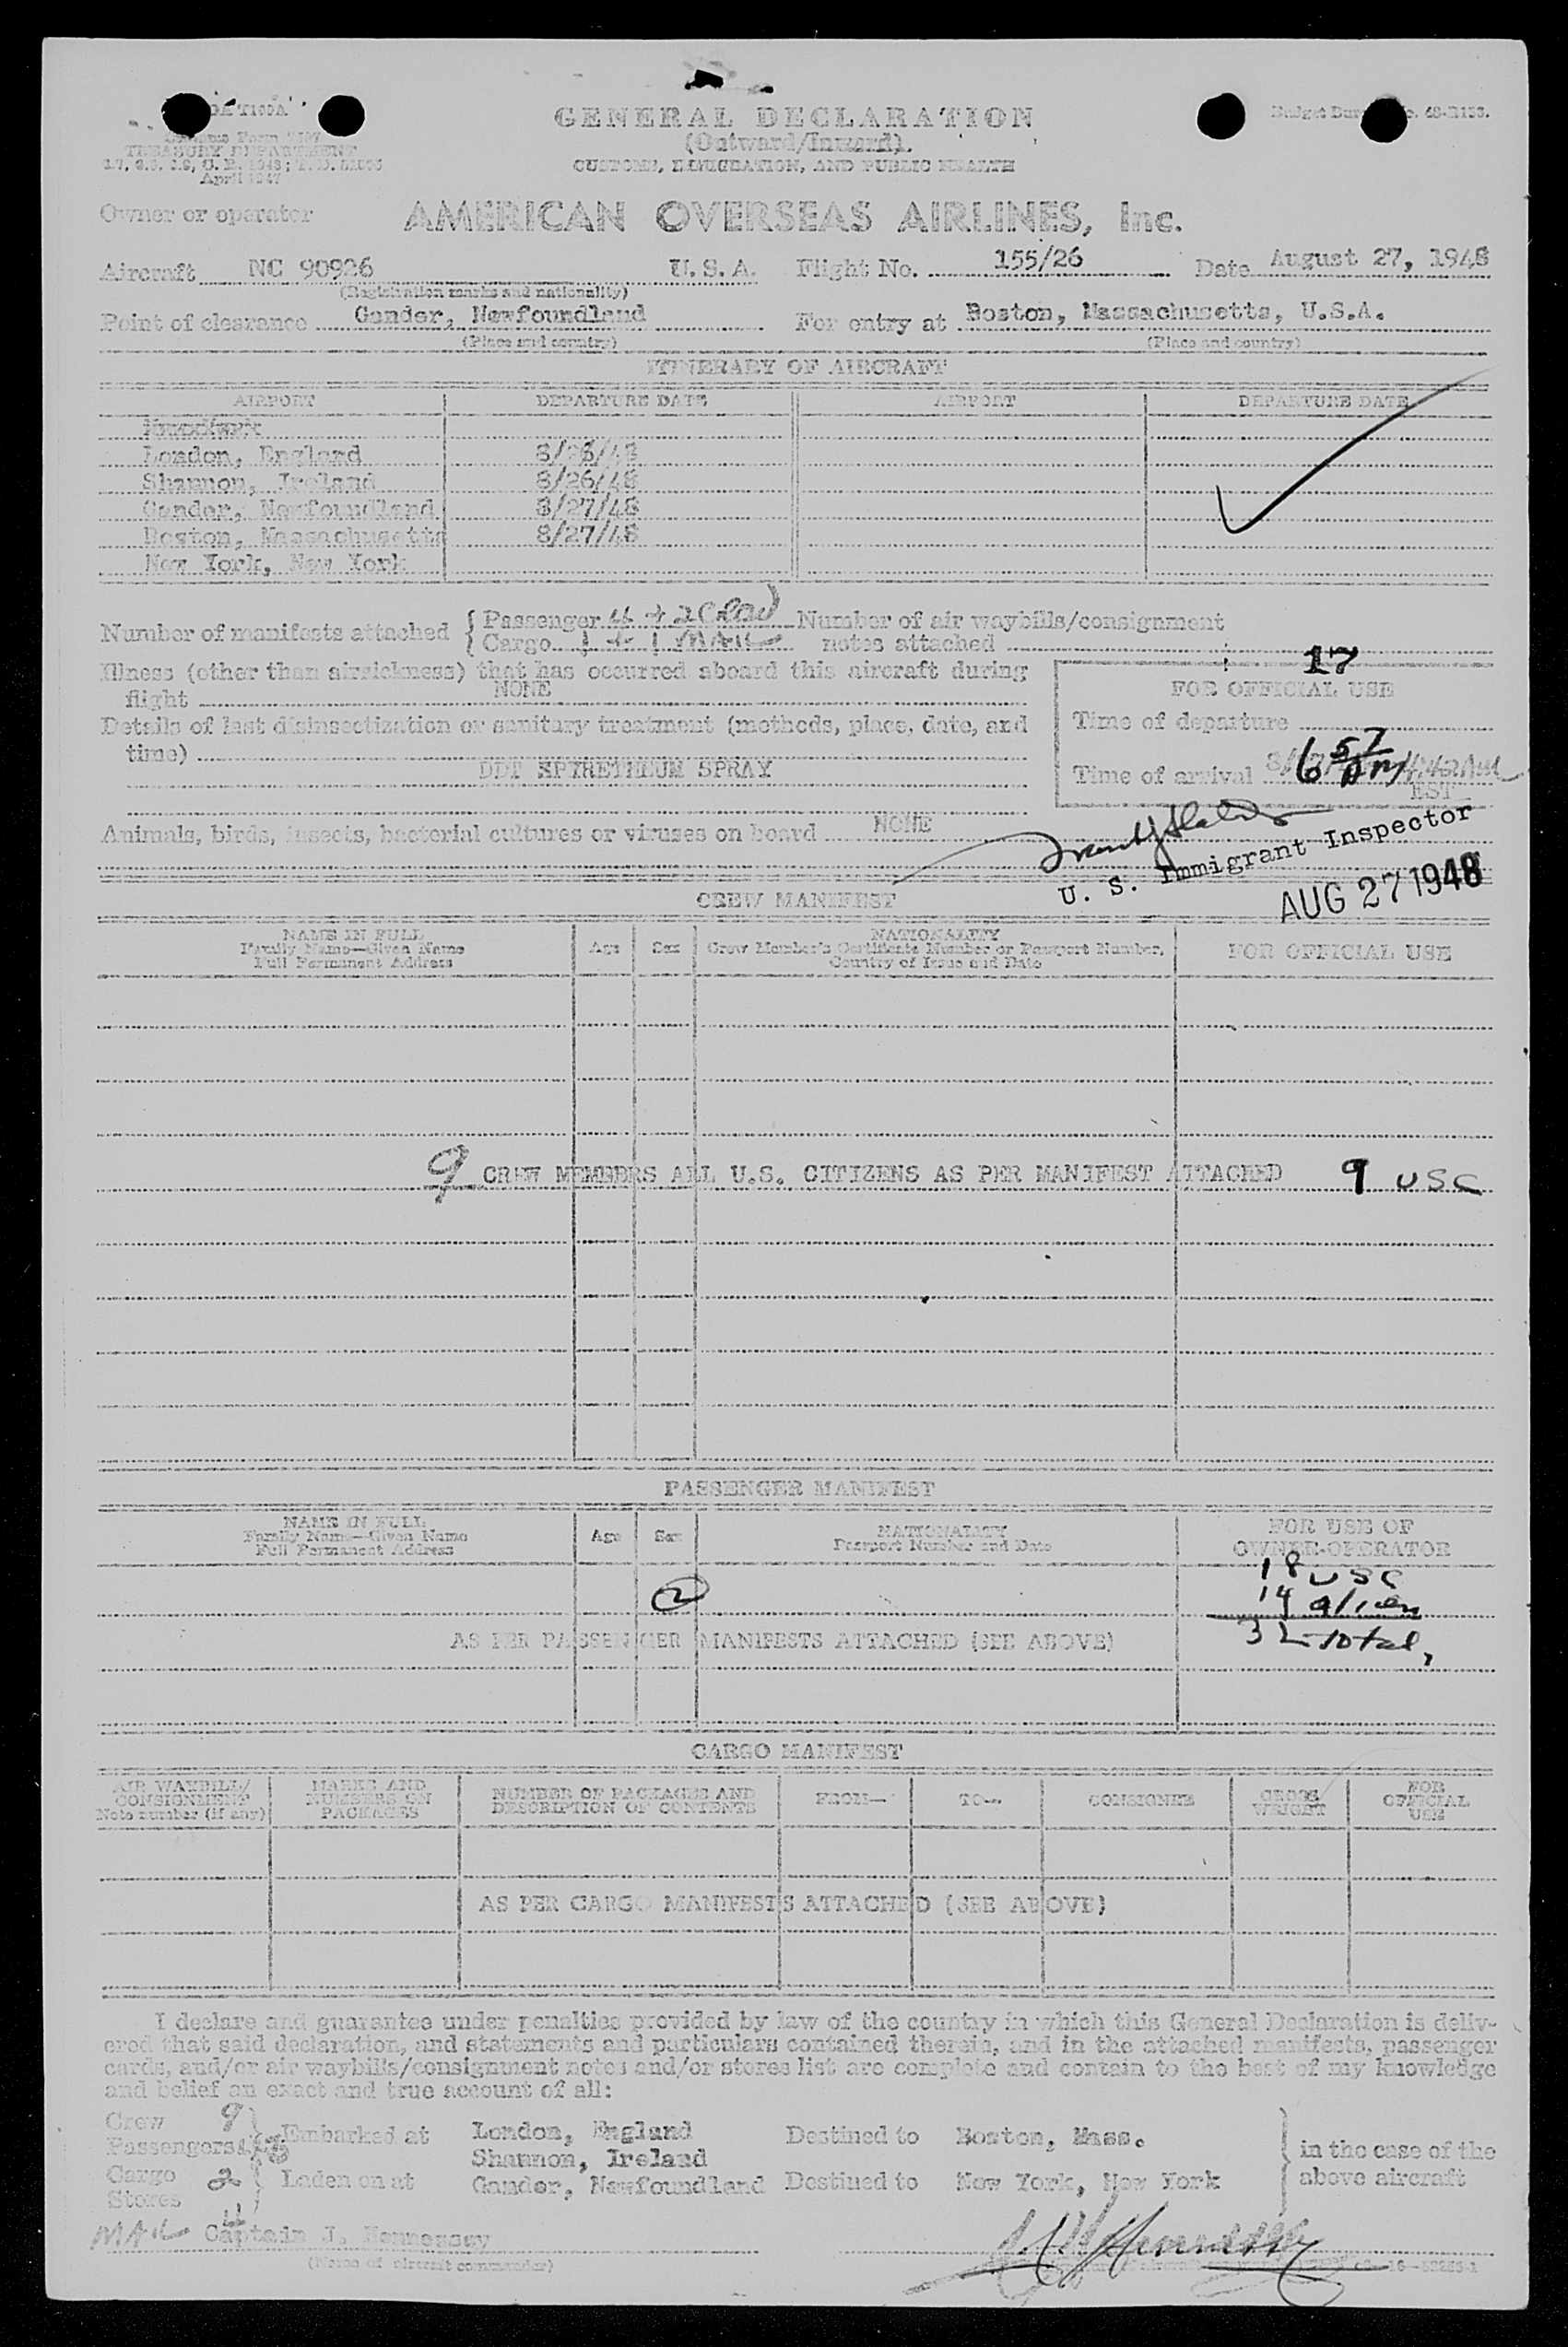 GENERAL DECLARATION
(Outward/Inward)
CUSTOMS, IMMIGRATION, AND PUBLIC HEALTH
TREASURY DEPARTMENT
April 1947
Owner or operator AMERICAN OVERSEAS AIRLINES, Inc.
Aircraft NC 90926 U. S. A. Flight No. 155/26 Date August 27, 1948
(Registration marks and nationality)
Point of clearance Gander, Newfoundland For entry at Boston, Massachusetts, U.S.A.
(Place and country) (Place and country)
ITINERARY OF AIRCRAFT
AIRPORT DEPARTURE DATE AIRPORT DEPARTURE DATE
London, England 8/26/48
Shannon, Ireland 8/26/48
Gander, Newfoundland 8/27/48
Boston, Massachusetts 8/27/48
New York, New York
Number of manifests attached { Passenger Number of air waybills/consignment
Cargo 1 + 1 MAIL notes attached
17
Illness (other than airsickness) that has occurred aboard this aircraft during
flight NONE
FOR OFFICIAL USE
Details of last disinsectization or sanitary treatment (methods, place, date, and
time)
Time of departure
DDT SPYRETHEUM SPRAY
Time of arrival 6 57 pm
EST
Animals, birds, insects, bacterial cultures or viruses on board NONE
U. S. Immigrant Inspector
AUG 27 1948
CREW MANIFEST
NAME IN FULL
Family Name—Given Name
Full Permanent Address
Age Sex
NATIONALITY
Crew Member's Certificate Number or Passport Number,
Country of Issue and Date
FOR OFFICIAL USE
9 CREW MEMBERS ALL U.S. CITIZENS AS PER MANIFEST ATTACHED 9 USC
PASSENGER MANIFEST
NAME IN FULL
Family Name—Given Name
Full Permanent Address
Age Sex
NATIONALITY
Passport Number and Date
FOR USE OF
OWNER-OPERATOR
18 USC
2
14 alien
32 total,
AS PER PASSENGER MANIFESTS ATTACHED (SEE ABOVE)
CARGO MANIFEST
AIR WAYBILL/
CONSIGNMENT
Note number (if any)
MARKS AND
NUMBERS ON
PACKAGES
NUMBER OF PACKAGES AND
DESCRIPTION OF CONTENTS
FROM— TO— CONSIGNEE
GROSS
WEIGHT
FOR
OFFICIAL
USE
AS PER CARGO MANIFESTS ATTACHED (SEE ABOVE)
I declare and guarantee under penalties provided by law of the country in which this General Declaration is deliv-
ered that said declaration, and statements and particulars contained therein, and in the attached manifests, passenger
cards, and/or air waybills/consignment notes and/or stores list are complete and contain to the best of my knowledge
and belief an exact and true account of all:
Crew 9
Passengers Embarked at London, England Destined to Boston, Mass. in the case of the
Shannon, Ireland
Cargo 2 Laden on at Gander, Newfoundland Destined to New York, New York above aircraft
Stores
MAIL Captain J. Hennessey
(Name of aircraft commander)